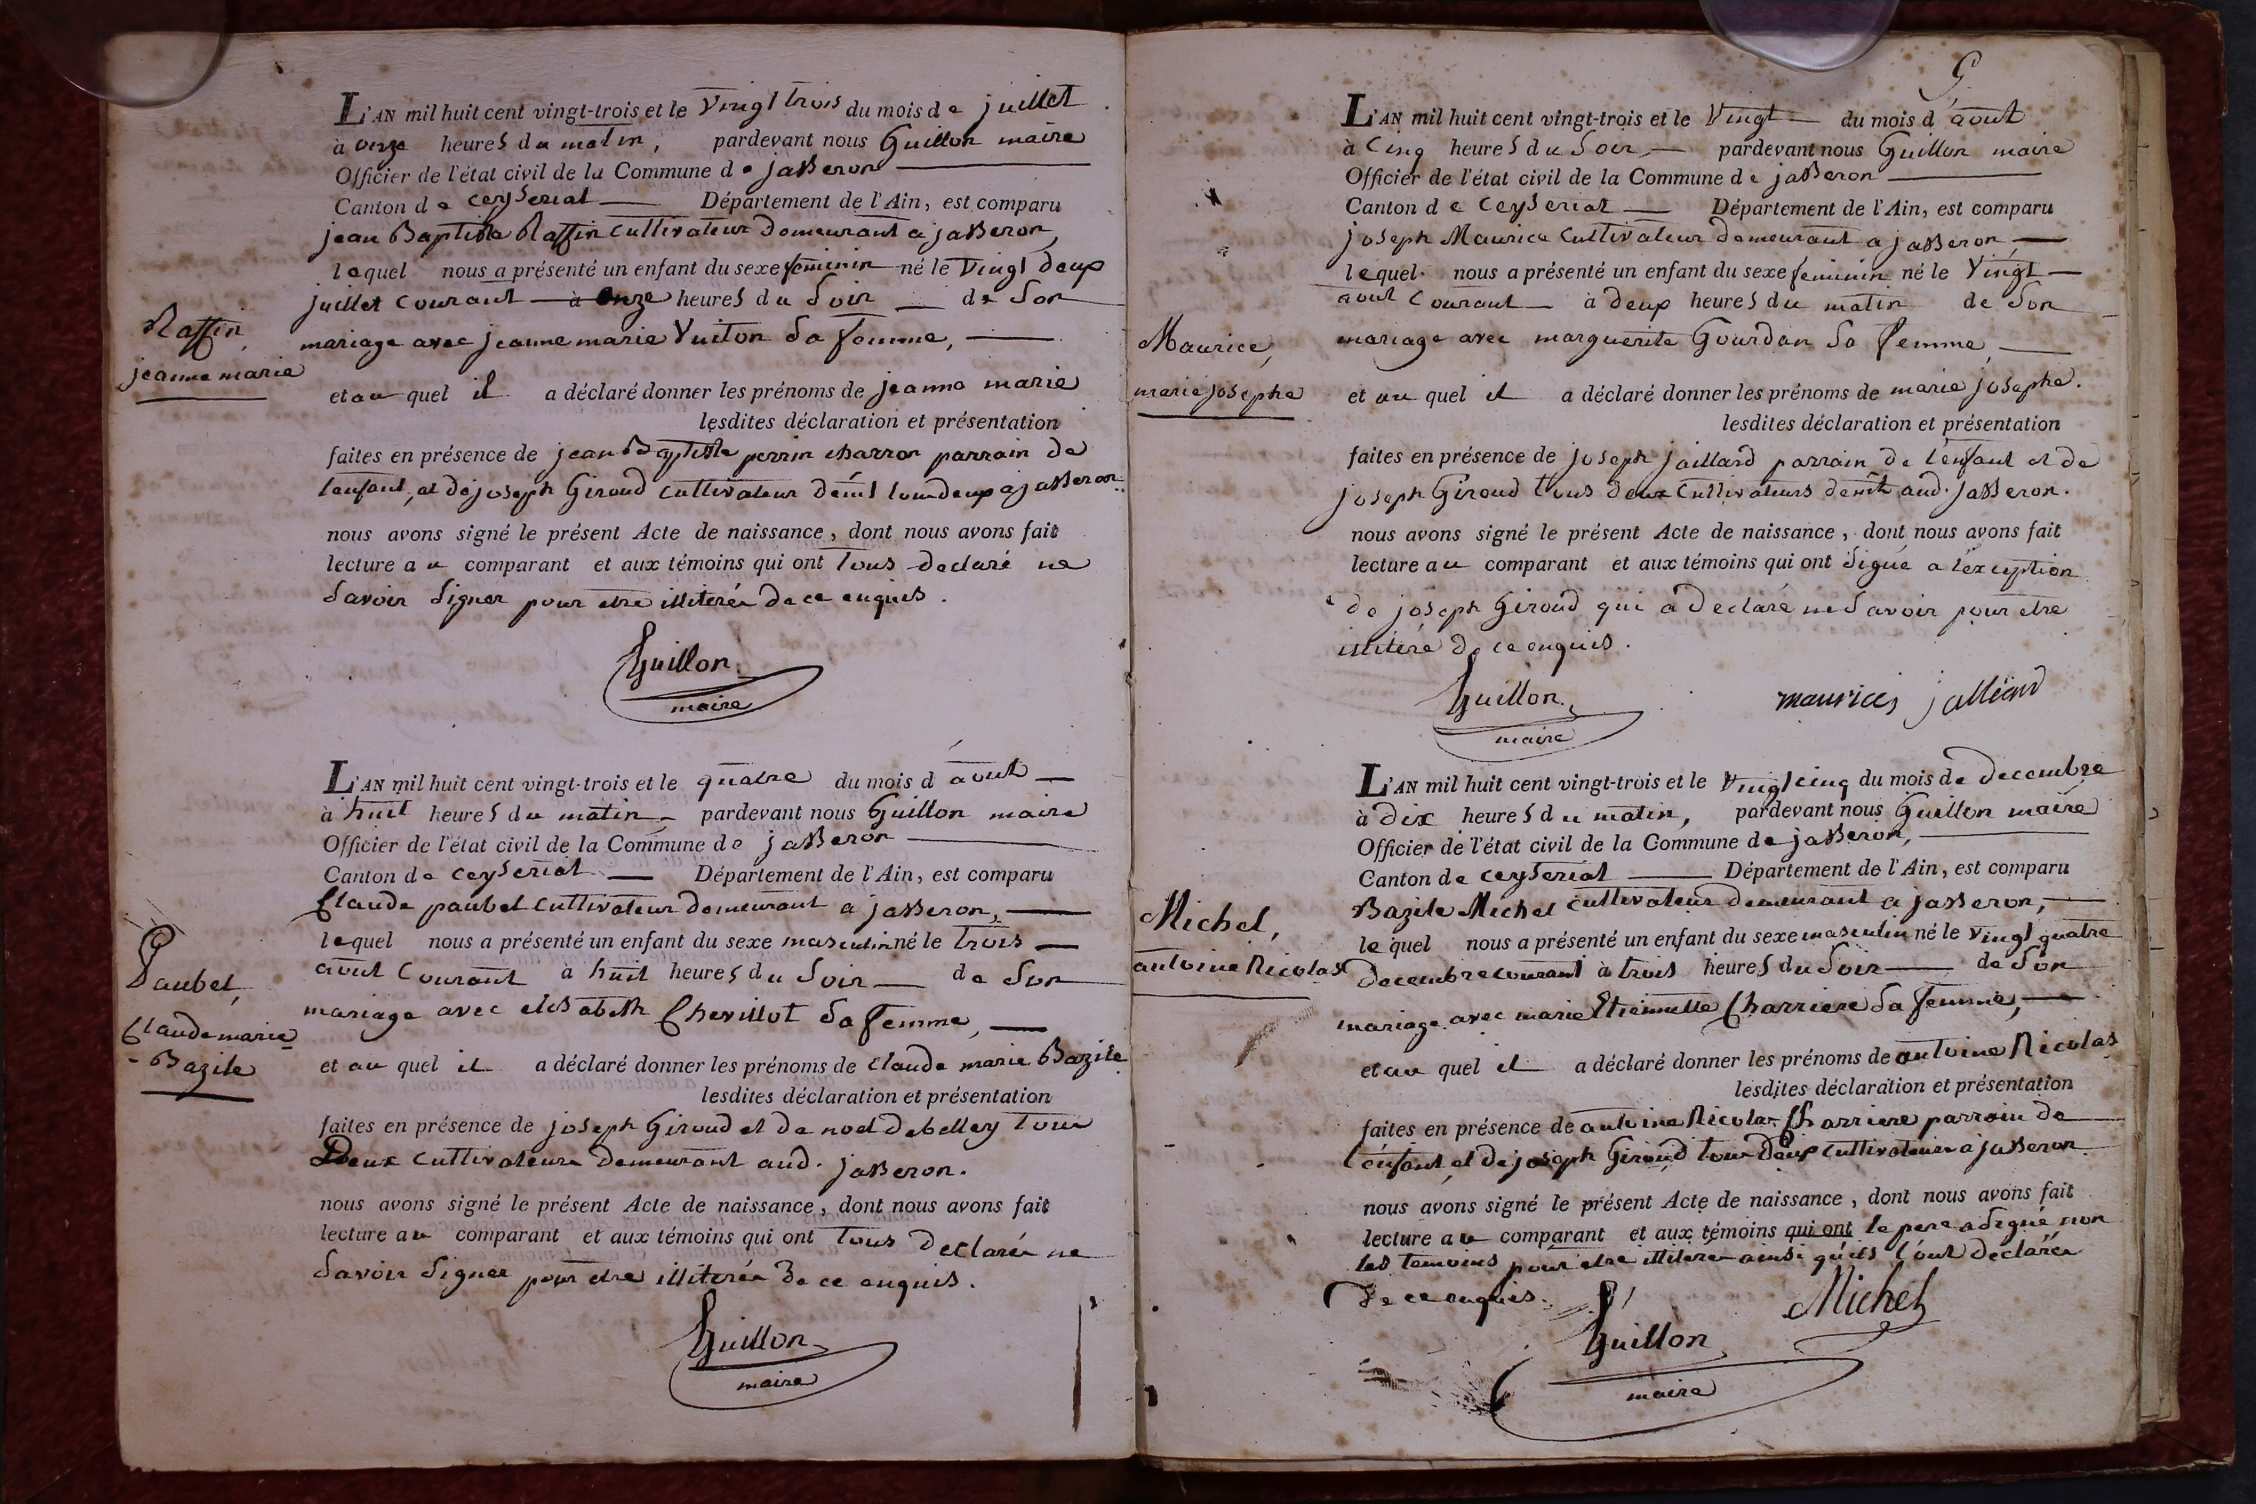 L'AN mil huit cent vingt-trois et le vingt trois du mois de juillet
à onze heures du matin, pardevant nous Guillon maire
Officier de l'état civil de la Commune de jasseron
Canton de ceyseriat Département de l'Ain, est comparu
jean Baptiste Raffin cultivateur demeurant a jasseron,
lequel nous a présenté un enfant du sexe feminin né le vingt deux
juillet courant à onze heures du soir de son
Raffin,
mariage avec jeanne marie Vuiton sa femme,
jeanne marie
et au quel il a déclaré donner les prénoms de jeanne marie
lesdites déclaration et présentation
faites en présence de jean Baptiste perrin charron parrain de
l'enfant, et de joseph Giroud cultivateur demts tous deux a jasseron.
nous avons signé le présent Acte de naissance, dont nous avons fait
lecture au comparant et aux témoins qui ont tous declaré ne
savoir signer pour etre illiterés de ce enquis.
Guillon
maire
L'AN mil huit cent vingt-trois et le quatre du mois d'aout
à huit heures du matin, pardevant nous Guillon maire
Officier de l'état civil de la Commune de jasseron
Canton de ceyseriat Département de l'Ain, est comparu
Claude paubel cultivateur demeurant a jasseron,
lequel nous a présenté un enfant du sexe masculin né le trois
Paubel,
aout courant à huit heures du soir de son
mariage avec elisabeth Chevillot sa femme,
Claude marie
- Bazile
et au quel il a déclaré donner les prénoms de claude marie Bazile
lesdites déclaration et présentation
faites en présence de joseph Giroud et de noel debelley tous
Deux cultivateurs demeurant aud. jasseron.
nous avons signé le présent Acte de naissance, dont nous avons fait
lecture au comparant et aux témoins qui ont tous declarés ne
savoir signer pour etre illiterés de ce enquis.
Guillon
maire
L'AN mil huit cent vingt-trois et le vingt du mois d'aout
à cinq heures du soir, pardevant nous Guillon maire
Officier de l'état civil de la Commune de jasseron
Canton de ceyseriat Département de l'Ain, est comparu
joseph Maurice cultivateur demeurant a jasseron,
lequel nous a présenté un enfant du sexe feminin né le vingt
aout courant à deux heures du matin de son
Maurice,
mariage avec marguerite Gourdan sa femme,
marie josephe
et au quel il a déclaré donner les prénoms de marie josephe.
lesdites déclaration et présentation
faites en présence de joseph jaillard parrain de l'enfant et de
joseph Giroud tous deux cultivateurs demts aud. jasseron.
nous avons signé le présent Acte de naissance, dont nous avons fait
lecture au comparant et aux témoins qui ont signé a l'exception
de joseph Giroud qui a declaré ne savoir pour etre
illiteré de ce enquis.
Guillon maurices
maire
L'AN mil huit cent vingt-trois et le vingt cinq du mois de decembre
à dix heures du matin, pardevant nous Guillon maire
Officier de l'état civil de la Commune de jasseron,
Canton de ceyseriat Département de l'Ain, est comparu
Bazile Michel cultivateur demeurant a jasseron,
Michel,
lequel nous a présenté un enfant du sexe masculin né le vingt quatre
antoine Nicolas
decembre courant à trois heures du soir de son
mariage avec marie Etiennette Charriere sa femme,
et au quel il a déclaré donner les prénoms de antoine Nicolas
lesdites déclaration et présentation
faites en présence de antoine Nicolas Charriere parrain de
l'enfant, et de joseph Giroud tous deux cultivateurs a jasseron
nous avons signé le présent Acte de naissance, dont nous avons fait
lecture au comparant et aux témoins qui ont le pere a signé non
les temoins pour etre illiteres ainsi qu'ils l'ont declarés
de ce enquis.
Michel
Guillon
maire